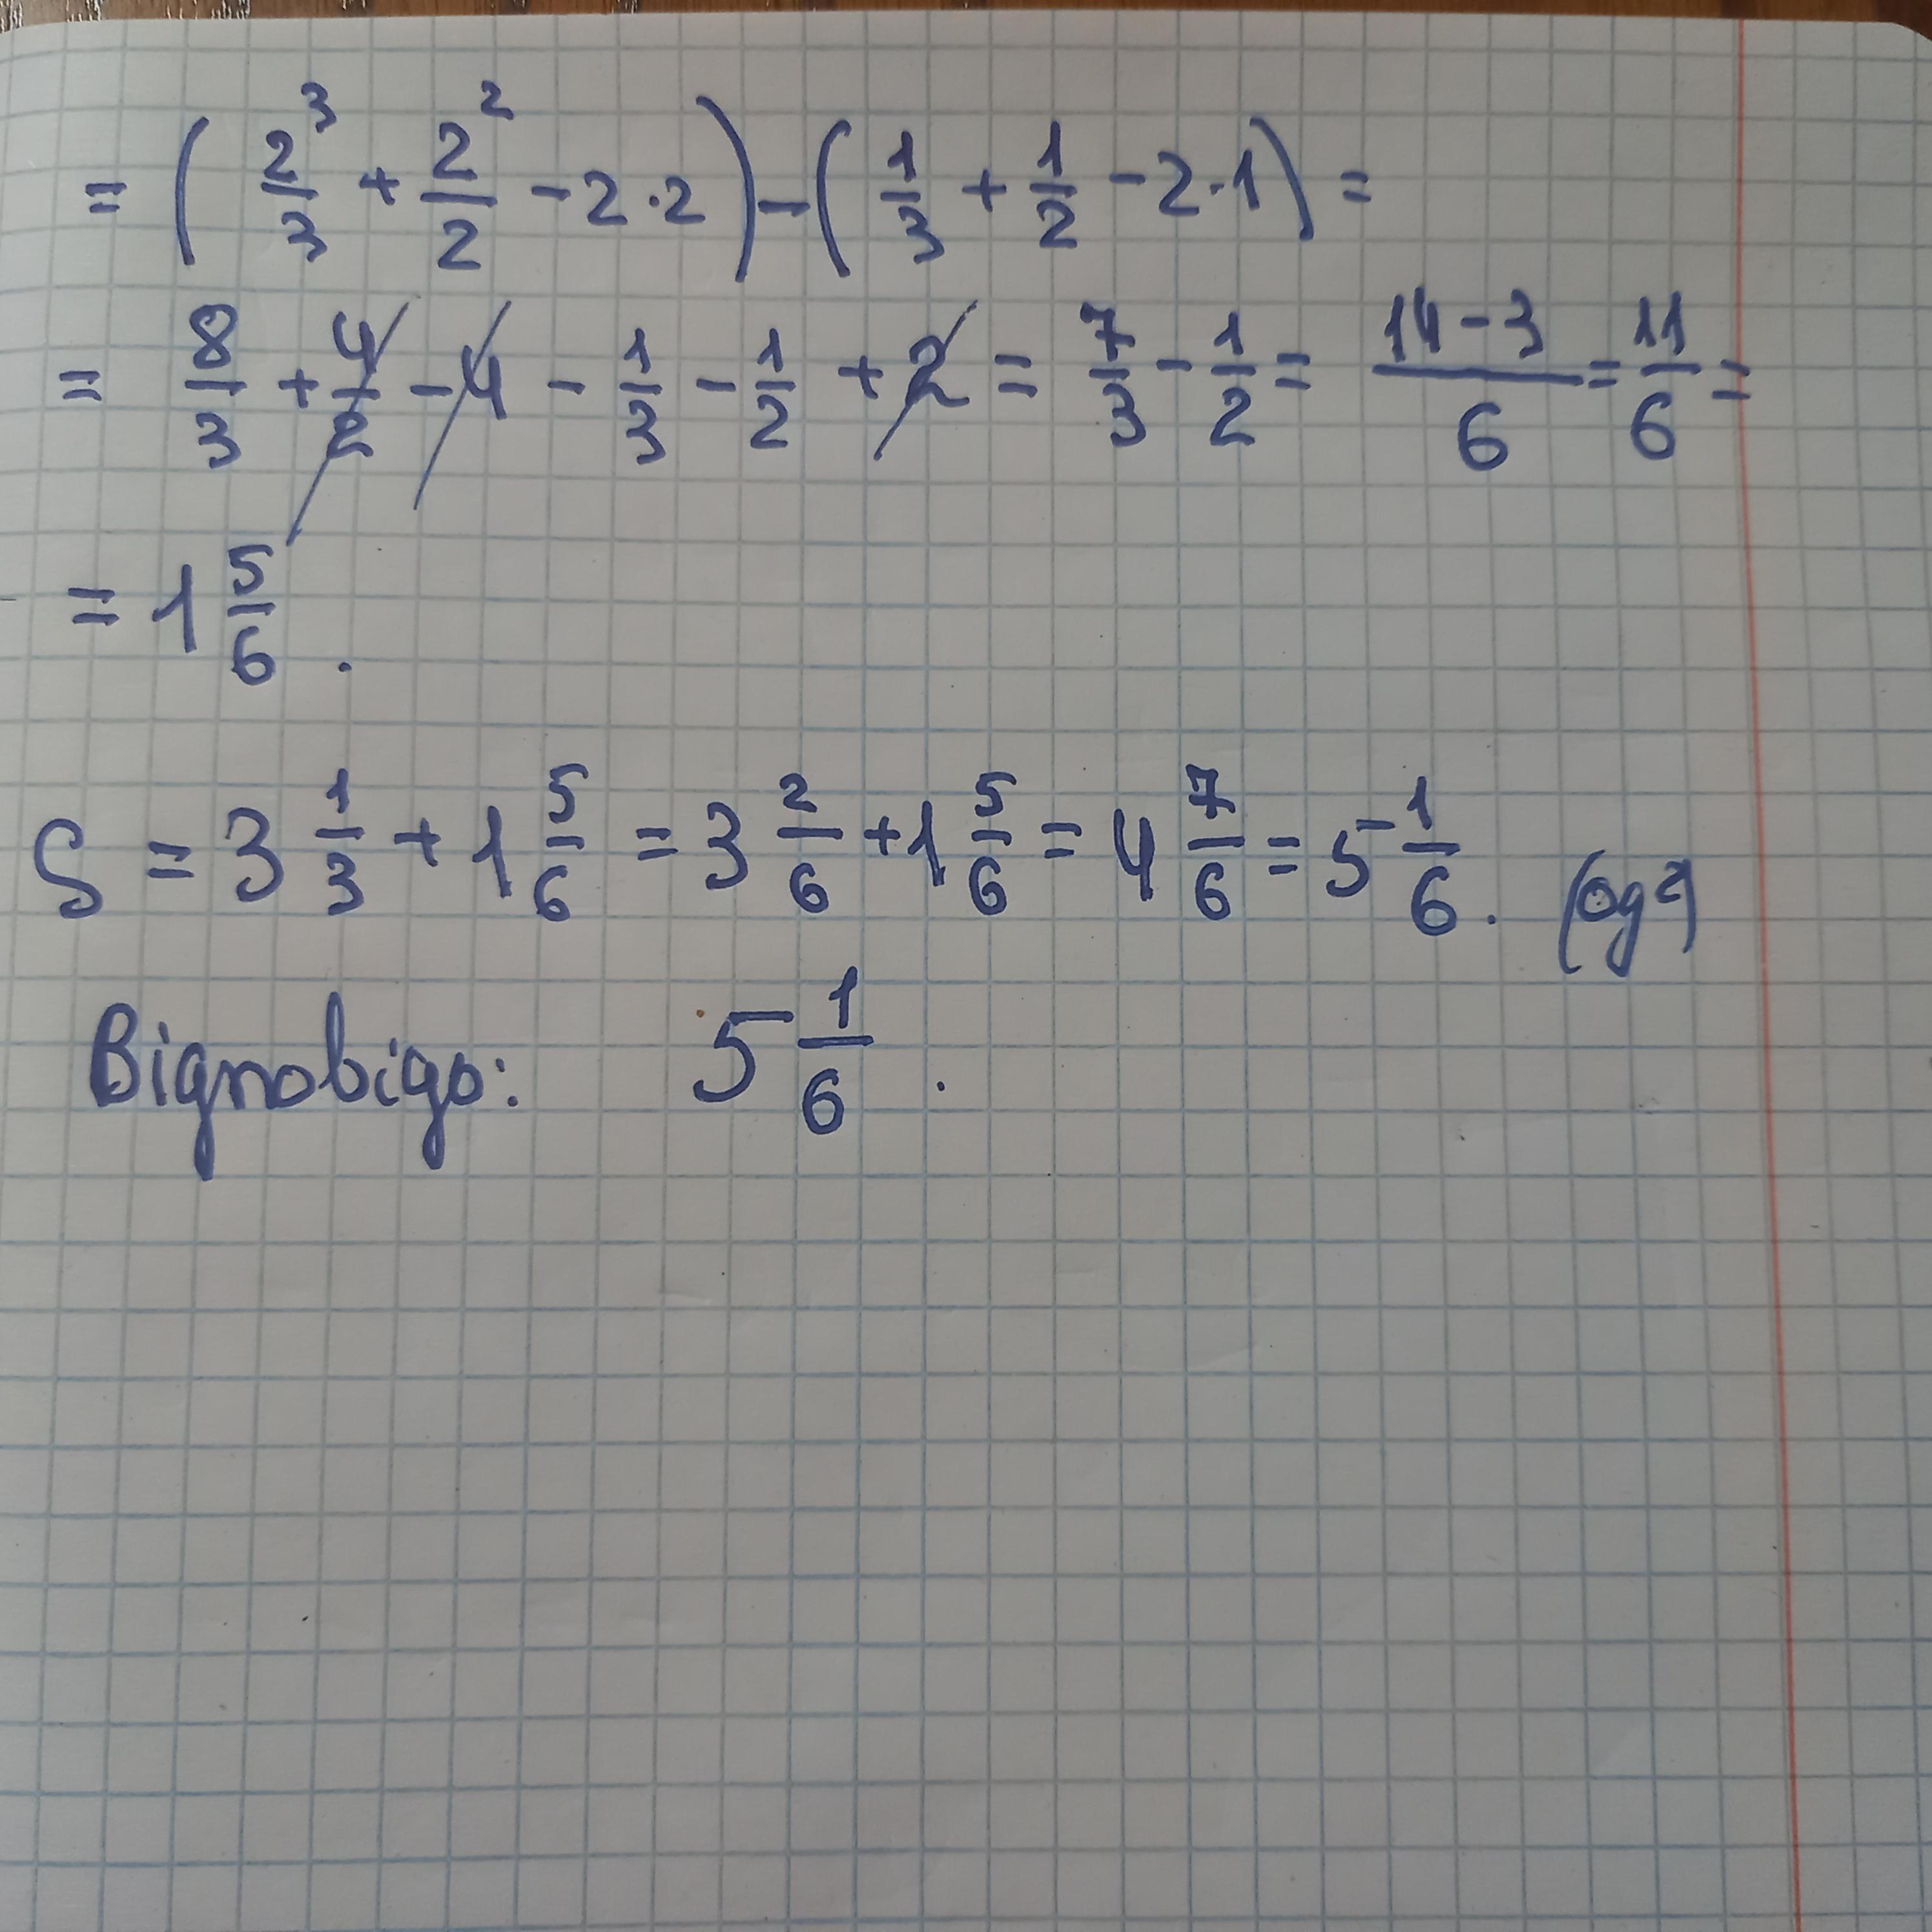 = (2³/3 + 2²/2 - 2·2) - (1/3 + 1/2 - 2·1) =
= 8/3 + 4/2 - 4 - 1/3 - 1/2 + 2 = 7/3 - 1/2 = (14-3)/6 = 11/6 =
= 1 5/6.
S = 3 1/3 + 1 5/6 = 3 2/6 + 1 5/6 = 4 7/6 = 5 1/6. (од²)
Відповідь: 5 1/6.